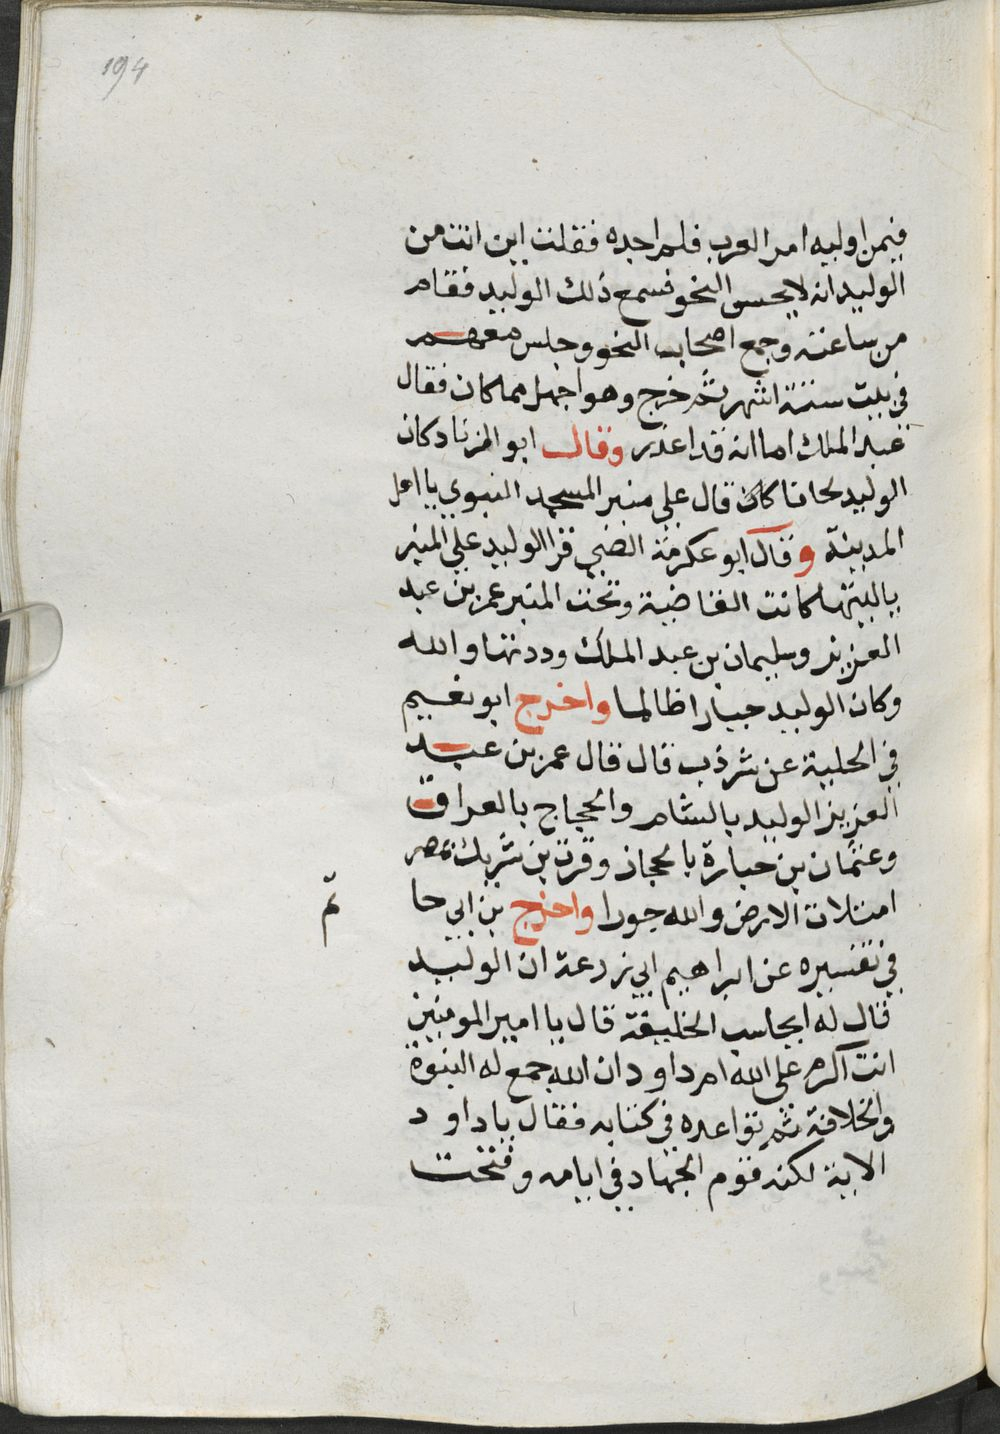 194
فيمن اوليه امر العرب فلم اجده فقلت اين انت من
الوليد انه لا يحسن النحو فسمع ذلك الوليد فقام
من ساعته وجمع اصحاب النحو وجلس معهم
في بيت ستة اشهر ثم خرج وهو اجهل مما كان فقال
عبد الملك اما انه قد اعذر وقال ابو الزناد كان
الوليد لحانا كان قال علي منبر المسجد النبوي يا اهل
المدينة وقال ابو عكرمة الضبي قرا الوليد علي المنبر
يا ليتها كانت القاضية وتحت المنبر عمر بن عبد
العزيز وسليمان بن عبد الملك وددتها والله
وكان الوليد جبارا ظالما واخرج ابو نعيم
في الحلية عن شرذب قال قال عمر بن عبد
العزيز الوليد بالشام والحجاج بالعراق
وعثمان بن حبارة بالحجاز وقرت بن شريك بمصر
امتلات الارض والله جورا واخرج بن ابي حا
تم
في تفسيره عن ابراهيم ابي زرعة ان الوليد
قال له ايحاسب الخليفة قال يا امير المومنين
انت اكرم علي الله ام داود ان الله جمع له النبوة
والخلافة ثم تواعده في كتابه فقال يا داود
الاية لكنه قوم الجهاد في ايامه وفتحت